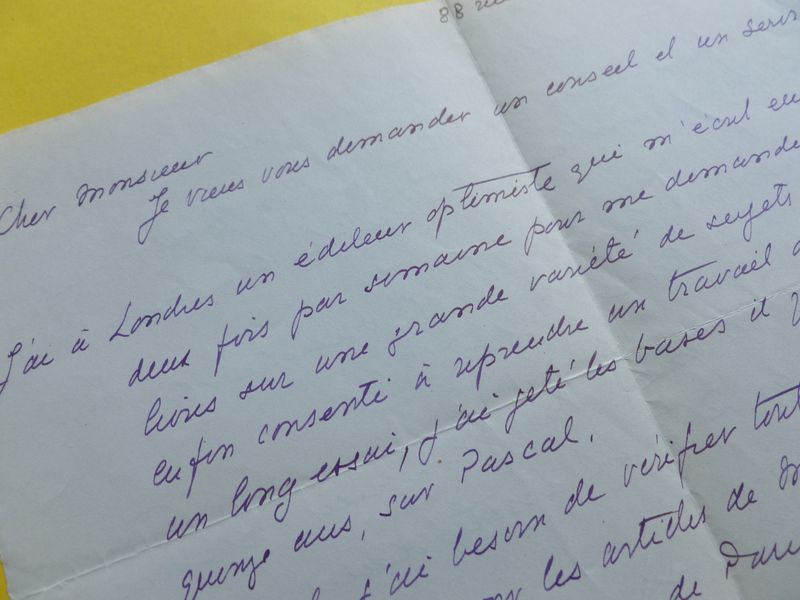 88
Cher Monsieur
Je viens vous demander un conseil et un
J'ai à Londres un éditeur optimiste qui m'écrit
deux fois par semaine pour me demander
livres sur une grande variété de sujets
enfin consenti à reprendre un travail
un long essai, j'ai jeté les bases il y
quinze ans, sur Pascal.
j'ai besoin de vérifier
les articles de
de